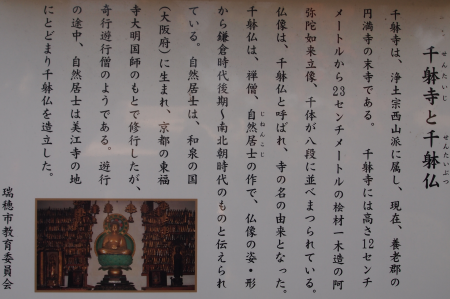 千躰寺と千躰仏
せんたいじ
せんたいぶつ
千躰寺は、浄土宗西山派に属し、現在、養老郡の
円満寺の末寺である。　千躰寺には高さ12センチ
メートルから23センチメートルの桧材一木造の阿
弥陀如来立像、千体が八段に並べまつられている。
仏像は、千躰仏と呼ばれ、寺の名の由来となった。
千躰仏は、禅僧、自然居士の作で、仏像の姿・形
じねんこじ
から鎌倉時代後期〜南北朝時代のものと伝えられ
ている。自然居士は、和泉の国
（大阪府）に生まれ、京都の東福
寺大明国師のもとで修行したが、
奇行遊行僧のようである。　遊行
の途中、自然居士は美江寺の地
にとどまり千躰仏を造立した。
瑞穂市教育委員会